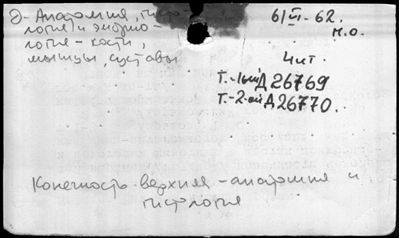 Э-Анатомия, гисто-
логия и эмбрио-
логия - кости,
мышцы, суставы
6/VI-62.
м.о.
Чит.
Т.-1ый Д26769
Т.-2-ой Д26770.
Конечность верхняя - анатомия и
гистология